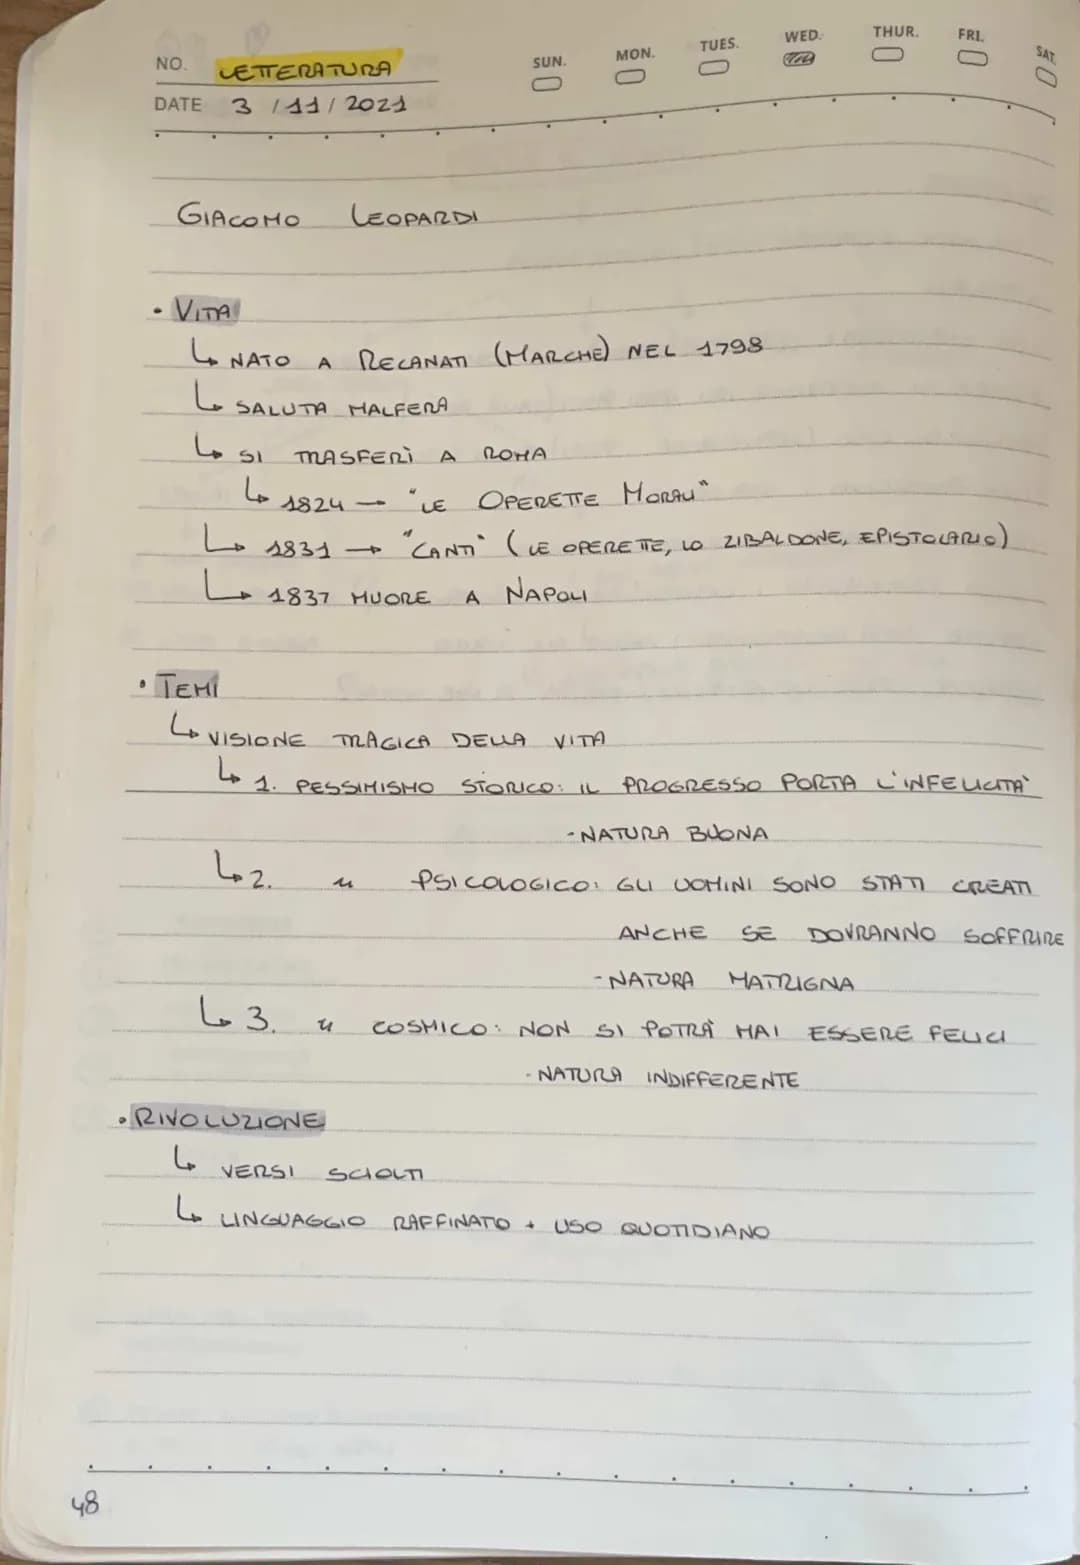 NO. LETTERATURA
DATE 3 / 11 / 2021
SUN. MON. TUES. WED. THUR. FRI. SAT.
GIACOMO LEOPARDI
• VITA
↳ NATO A RECANATI (MARCHE) NEL 1798
↳ SALUTA MALFERA
↳ SI TRASFERÌ A ROMA
↳ 1824 → "LE OPERETTE MORALI"
↳ 1831 → "CANTI" (LE OPERETTE, LO ZIBALDONE, EPISTOLARIO)
↳ 1837 MUORE A NAPOLI
• TEMI
↳ VISIONE TRAGICA DELLA VITA
↳ 1. PESSIMISMO STORICO: IL PROGRESSO PORTA L'INFELICITÀ
- NATURA BUONA
↳ 2. " PSICOLOGICO: GLI UOMINI SONO STATI CREATI
ANCHE SE DOVRANNO SOFFRIRE
- NATURA MATRIGNA
↳ 3. " COSMICO: NON SI POTRÀ MAI ESSERE FELICI
- NATURA INDIFFERENTE
• RIVOLUZIONE
↳ VERSI SCIOLTI
↳ LINGUAGGIO RAFFINATO + USO QUOTIDIANO
48